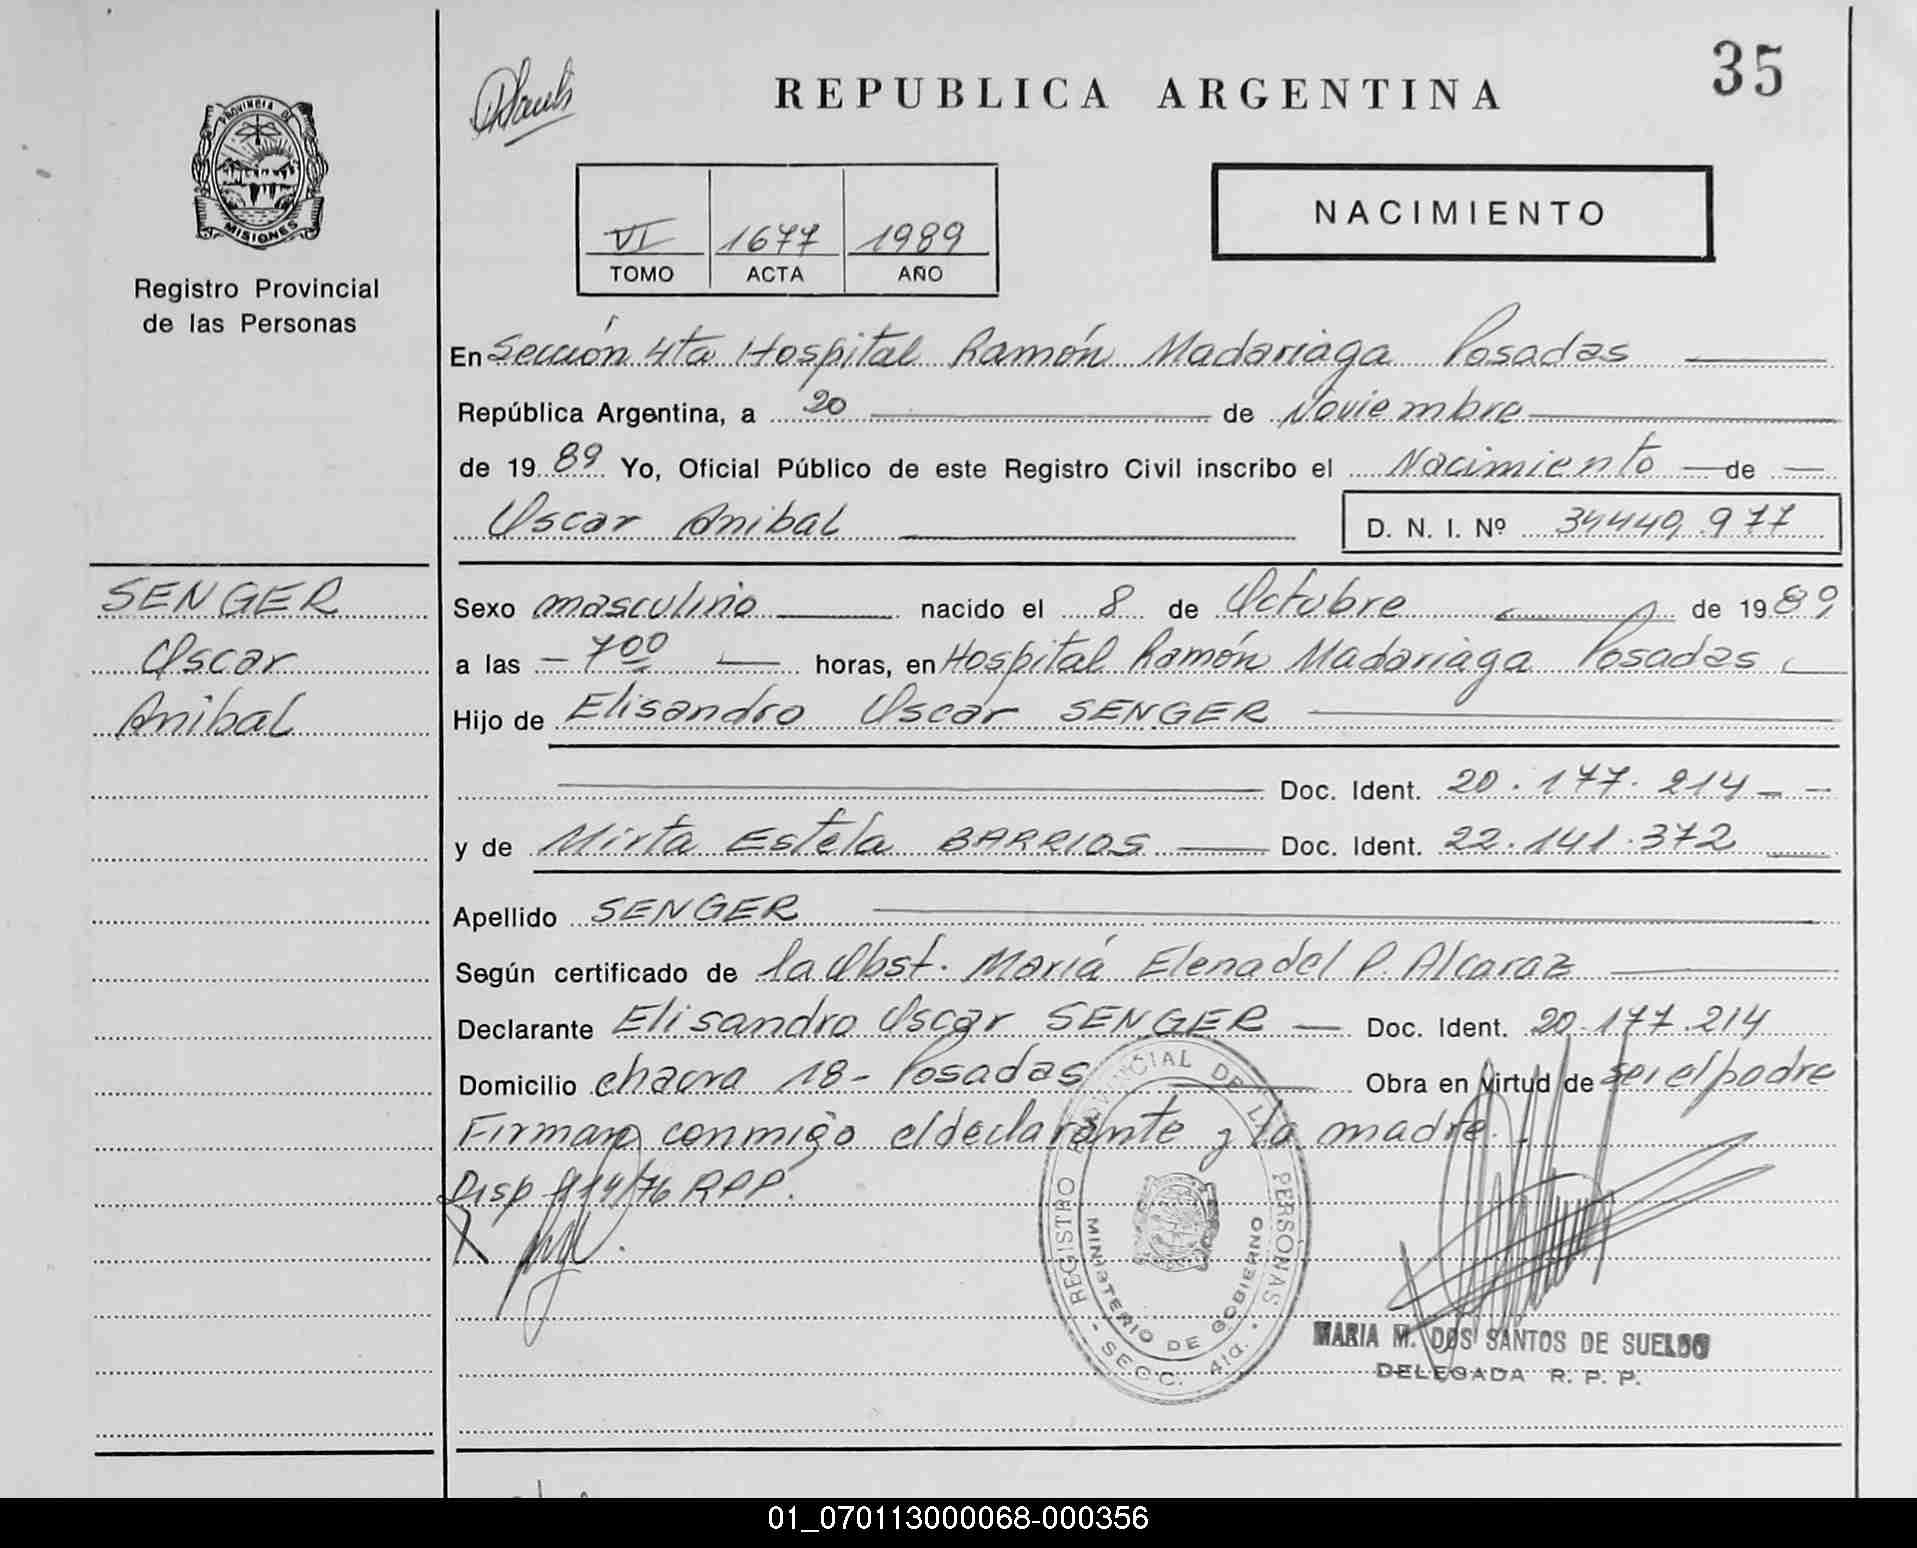 35
REPUBLICA ARGENTINA
PROVINCIA DE
MISIONES
Registro Provincial
de las Personas
NACIMIENTO
VI 1677 1989
TOMO ACTA AÑO
En Sección 4ta Hospital Ramón Madariaga Posadas
República Argentina, a 20 de Noviembre
de 1989 Yo, Oficial Público de este Registro Civil inscribo el Nacimiento de
Oscar Anibal D. N. I. Nº 34449.977
SENGER
Oscar
Anibal
Sexo masculino nacido el 8 de Octubre de 1989
a las 7 00 horas, en Hospital Ramón Madariaga Posadas
Hijo de Elisandro Oscar SENGER
Doc. Ident. 20.177.214
y de Mirta Estela BARRIOS Doc. Ident. 22.141.372
Apellido SENGER
Según certificado de la Obst. María Elena del P. Alcaraz
Declarante Elisandro Oscar SENGER Doc. Ident. 20.177.214
Domicilio chacra 18- Posadas Obra en virtud de ser el padre
Firman conmigo el declarante y la madre.
Disp /76 RPP.
REGISTRO PROVINCIAL DE LAS PERSONAS
MINISTERIO DE GOBIERNO
- SECC. 4ta. -
MARIA M. DOS SANTOS DE SUELDO
DELEGADA R. P. P.
01_070113000068-000356